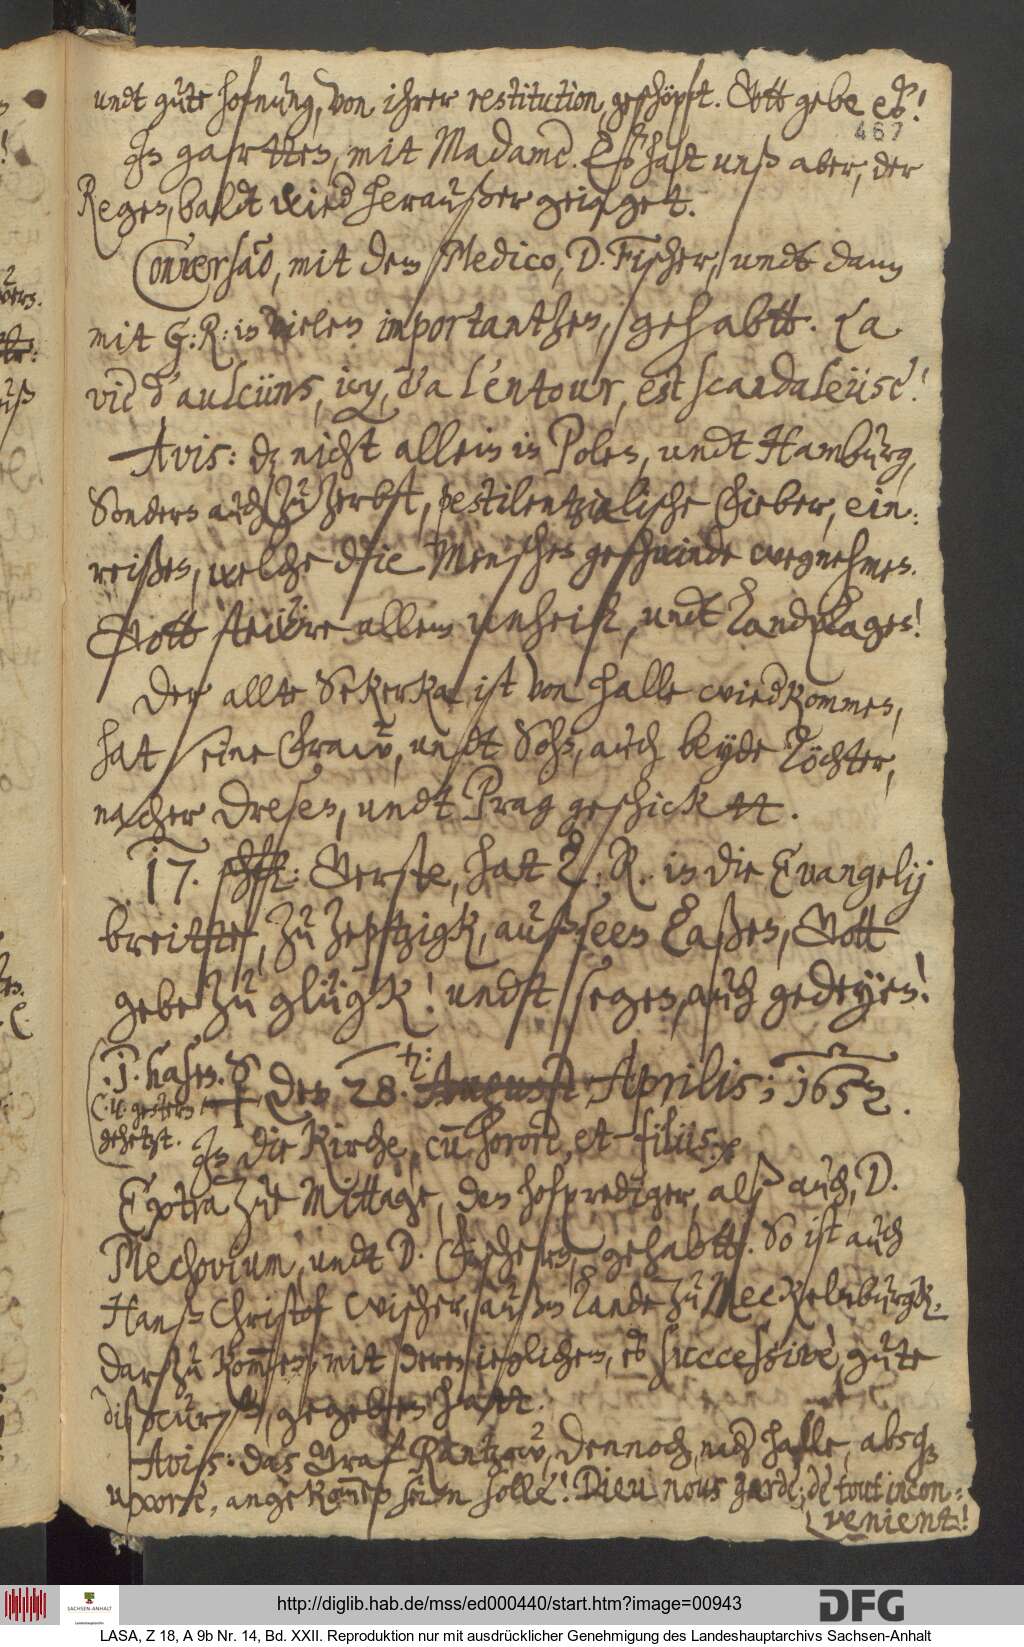 undt gute hofnung, von ihrer restitution, geschöpft. Gott gebe es!
467
In gartten, mit Madame. Es hatt unß aber, der
Regen, baldt wied heraußer geiaget.
Conversãõ, mit dem Medico, D. Fischer, undt dann
mit G: R: in vielen importantzen, gehabtt. La
vie d'aulcüns, icy, & a l'entour, est scandaleüse!
Avis: dz nicht allein in Polen, undt Hamburg,
Sondern auch zu Zerbst, pestilentzialische Fieber, ein-
reißen, welche die Menschen geschwinde wegnehmen.
Gott steüre allem unheil, undt Landplagen!
Der allte Sekerka ist von Halle wiedkommen,
hat seine Fraw, undt Sohn, auch beyde Töchter,
nacher Dresen, undt Prag geschicktt.
17. schfl: Gerste, hatt T. R. in die Evangelij
breitte, zu Zeptzigk, außseen laßen, Gott
gebe zu glügk! undt segen, auch gedeyen!
.1. hasen. S
C. U. gestern
gehetzt.
den 28. Aprilis; 1652.
In die Kirche, cũ sorore, et filiis.
Extra zur Mittage, den hofprediger, alß auch, D.
Mechovium, undt D. Fischern, gehabtt. So ist auch
Hanß Christof Wischer, außm Lande zu Meckelnburgk,
darzu kommen, mit deren ieglichem, es successive, gute
discurß, gegeben hatt.
Avis: das Graf Rantzow, dennoch, nach Halle, absq̃
uxore, angekom̃en sein solle! Dieu nous garde, de tout incon-
venient!
http://diglib.hab.de/mss/ed000440/start.htm?image=00943
SACHSEN-ANHALT
DFG
LASA, Z 18, A 9b Nr. 14, Bd. XXII. Reproduktion nur mit ausdrücklicher Genehmigung des Landeshauptarchivs Sachsen-Anhalt